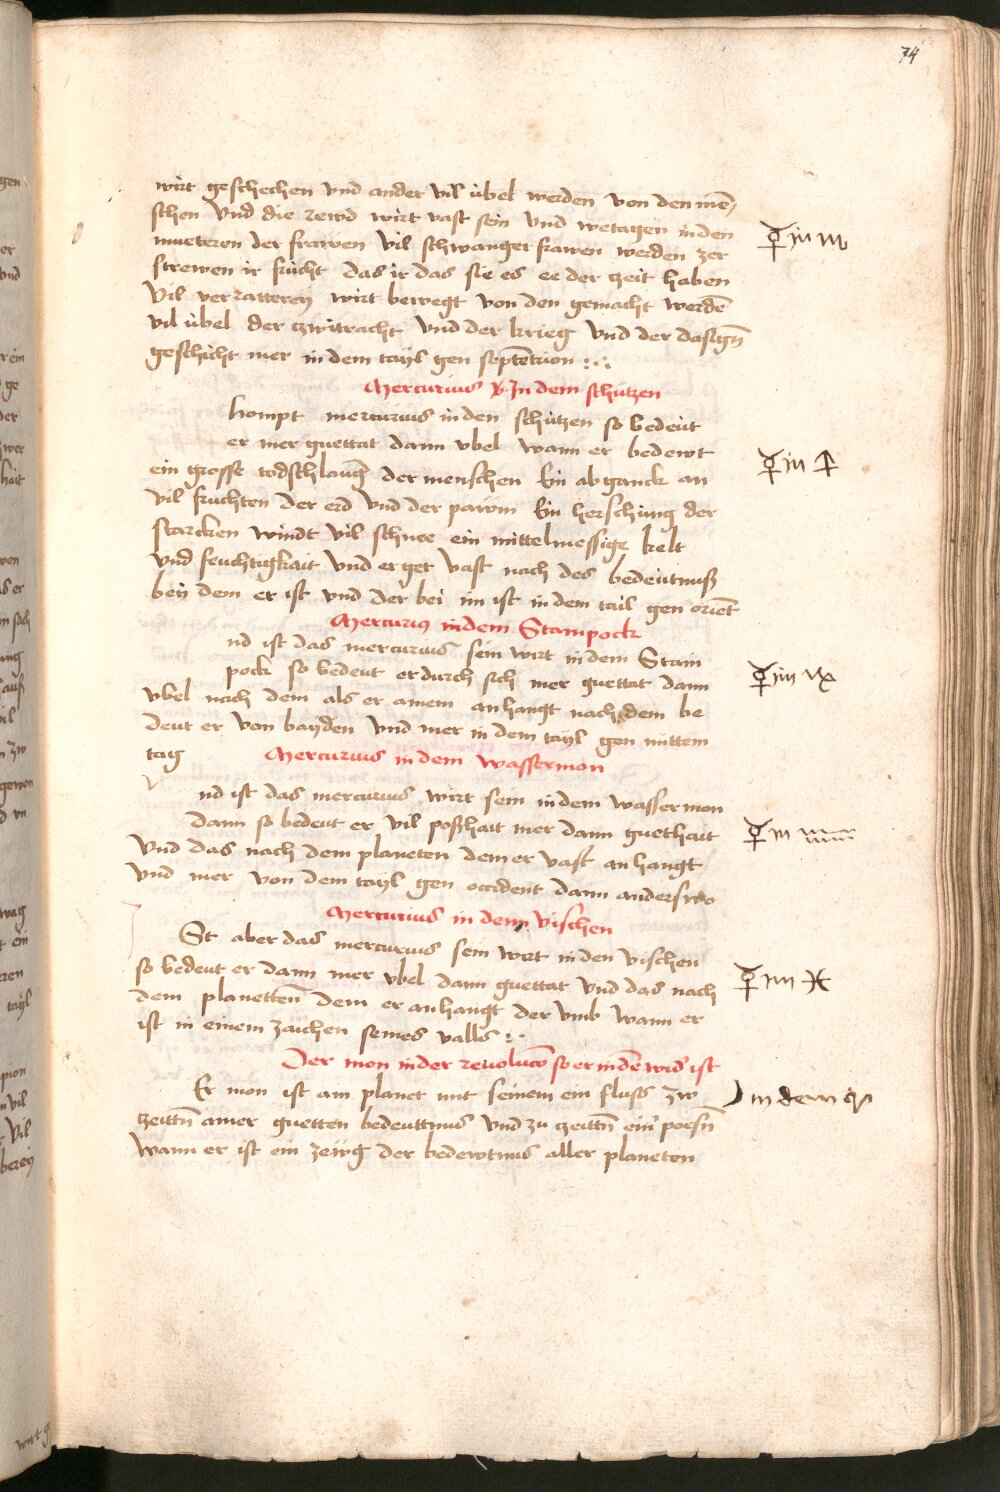 74
wirt geschechen vnd ander vil übel werden von den mē,
schen Vnd die rewd wirt vast sein vnd wetagen in den
mueteren der frawen vil schwanger frawen werden zer
strewen ir frücht das ir das sie es ee der zeit haben
Vil verratterey wirt bewegt von den gemacht werdē
vil übel der zwitracht vnd der krieg vnd der dasigñ
geschicht mer in dem tayl gen septētrion :·:
☿ in ♏
Mercurius In dem schützen
kompt mercurius in den schützen so bedeut
er mer guettat dann vbel wann er bedewt
ein grosse todschlaung der menschen Ein abganck an
vil fruchten der erd vnd der pawm Ein herschung der
starcken windt vil schnee ein mittelmessige kelt
vnd feuchtigkait vnd er get vast nach des bedeutnuß
bey dem er ist vnd der bei im ist in dem tail gen oriēt
☿ in ♐
Mercurius in dem Stainpock
nd ist das mercurius sein wirt in dem Stain
pock so bedeut er durch sich mer guettat dann
vbel nach dem als er ainem anhangt nach dem be
deut er von bayden vnd mer in dem tayl gen mittem
tag
☿ in ♑
Mercurius in dem wasserman
nd ist das mercurius wirt sein in dem wasser mon
dann so bedeut er vil poßhait mer dann guethait
Vnd das nach dem planeten dem er vast anhangt
vnd mer von dem tayl gen occident dann anderswo
☿ in ♒
Mercurius in dem vischen
St aber das mercurius sein wirt in den vischen
so bedeut er dann mer vbel dann guettat vnd das nach
dem planettenn dem er anhangt der vmb wann er
ist in einem zaichen seines valls :·
☿ in ♓
Der mon in der reuolucō so er in dē wid' ist
Er mon ist ain planet mit seinem ein fluss zw
zeittñ ainer guetten bedeuttnus vnd zu zeittñ ein' poesñ
wann er ist ein zewg der bedewtnus aller planeten
☽ in dem ♈